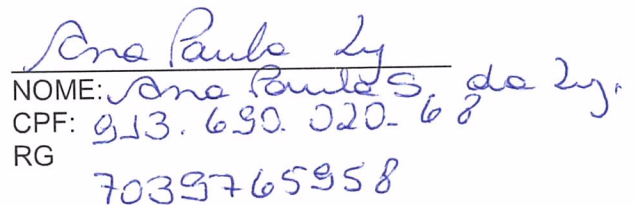 Ana Paula Luz
NOME: Ana Paula S. da Luz.
CPF: 913.690.020-68
RG
7039765958